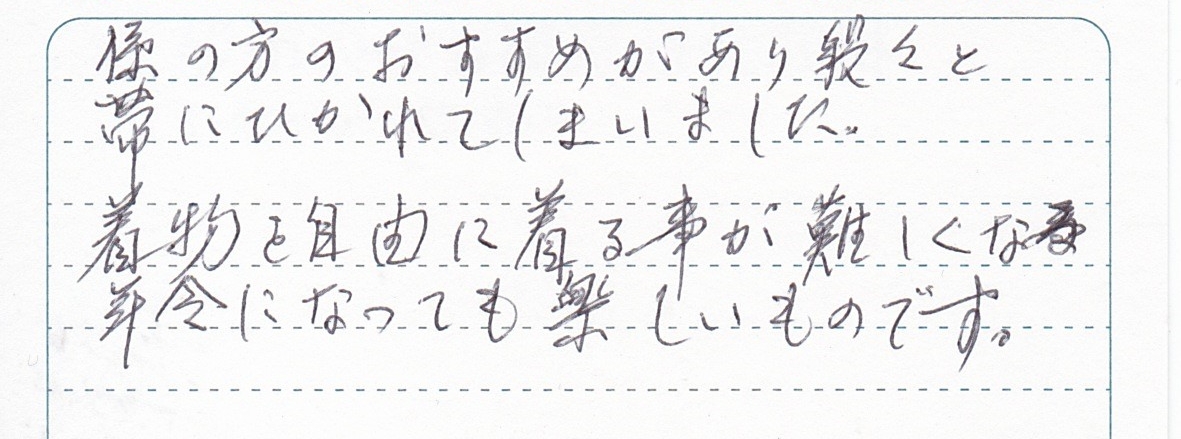 係の方のおすすめがあり段々と
帯にひかれてしまいました。
着物を自由に着る事が難しくなる
年令になっても楽しいものです。